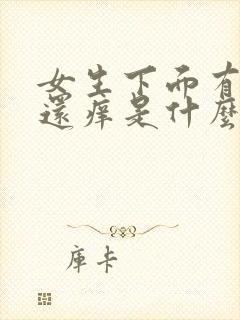 女生下面有
還痒是什麼
庫卡